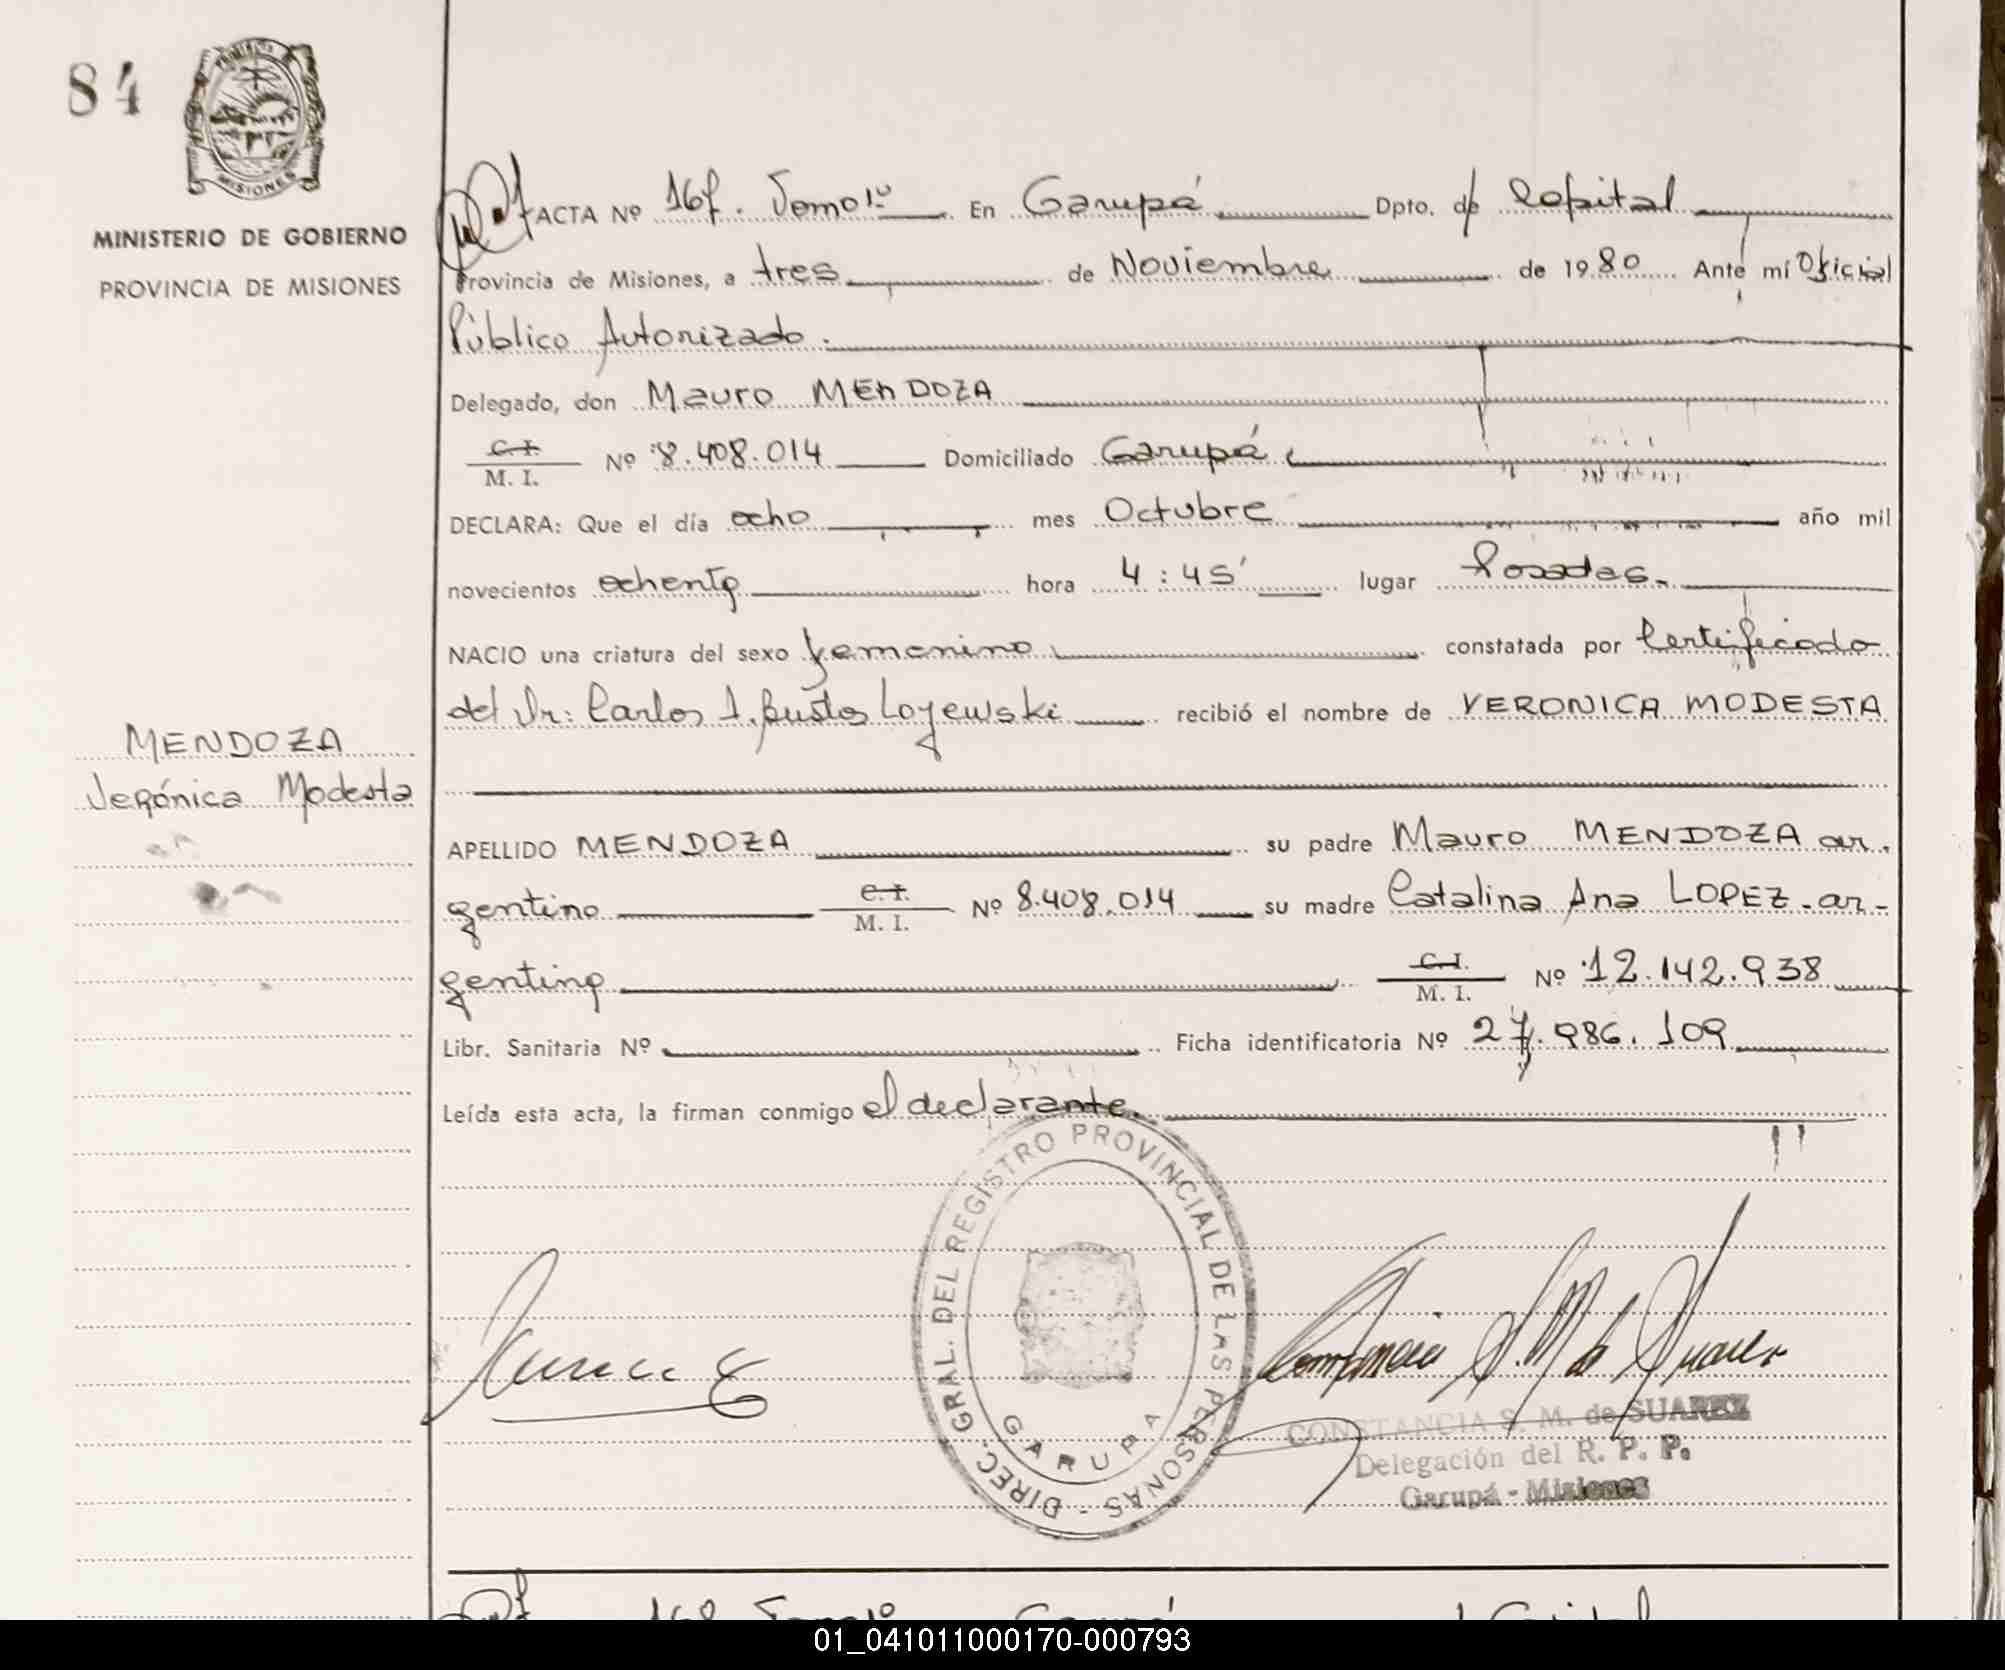 84
MISIONES
MINISTERIO DE GOBIERNO
PROVINCIA DE MISIONES
ACTA Nº 167. Tomo 1º En Garupá Dpto. de Capital
Provincia de Misiones, a tres de Noviembre de 1980 Ante mí Oficial
Público Autorizado.
Delegado, don Mauro MENDOZA
C. I.
M. I. Nº 8.408.014 Domiciliado Garupá
DECLARA: Que el día ocho mes Octubre año mil
novecientos ochenta hora 4:45' lugar Posadas.
NACIO una criatura del sexo femenino constatada por Certificado
del Dr: Carlos A. Bustos Loyewski recibió el nombre de VERONICA MODESTA
MENDOZA
Verónica Modesta
APELLIDO MENDOZA su padre Mauro MENDOZA ar.
gentino C. I.
M. I. Nº 8.408.014 su madre Catalina Ana LOPEZ - ar-
gentina C. I.
M. I. Nº 12.142.938
Libr. Sanitaria Nº Ficha identificatoria Nº 27.986.109
Leída esta acta, la firman conmigo el declarante.
DIREC. GRAL. DEL REGISTRO PROVINCIAL DE LAS PERSONAS -
GARUPA
Constancia S. M. de Suarez
CONSTANCIA S. M. de SUAREZ
Delegación del R. P. P.
Garupá - Misiones
01_041011000170-000793